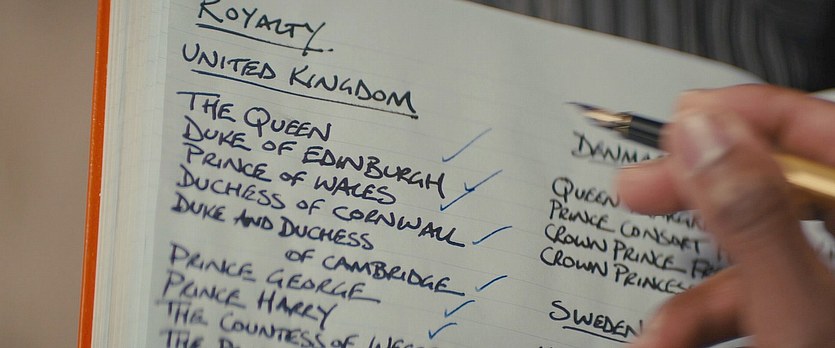 ROYALTY.
UNITED KINGDOM
THE QUEEN
DUKE OF EDINBURGH
PRINCE OF WALES
DUCHESS OF CORNWALL
DUKE AND DUCHESS
OF CAMBRIDGE
PRINCE GEORGE
PRINCE HARRY
THE COUNTESS OF
THE
QUEEN
PRINCE CONSORT
CROWN PRINCE
CROWN
SWEDEN